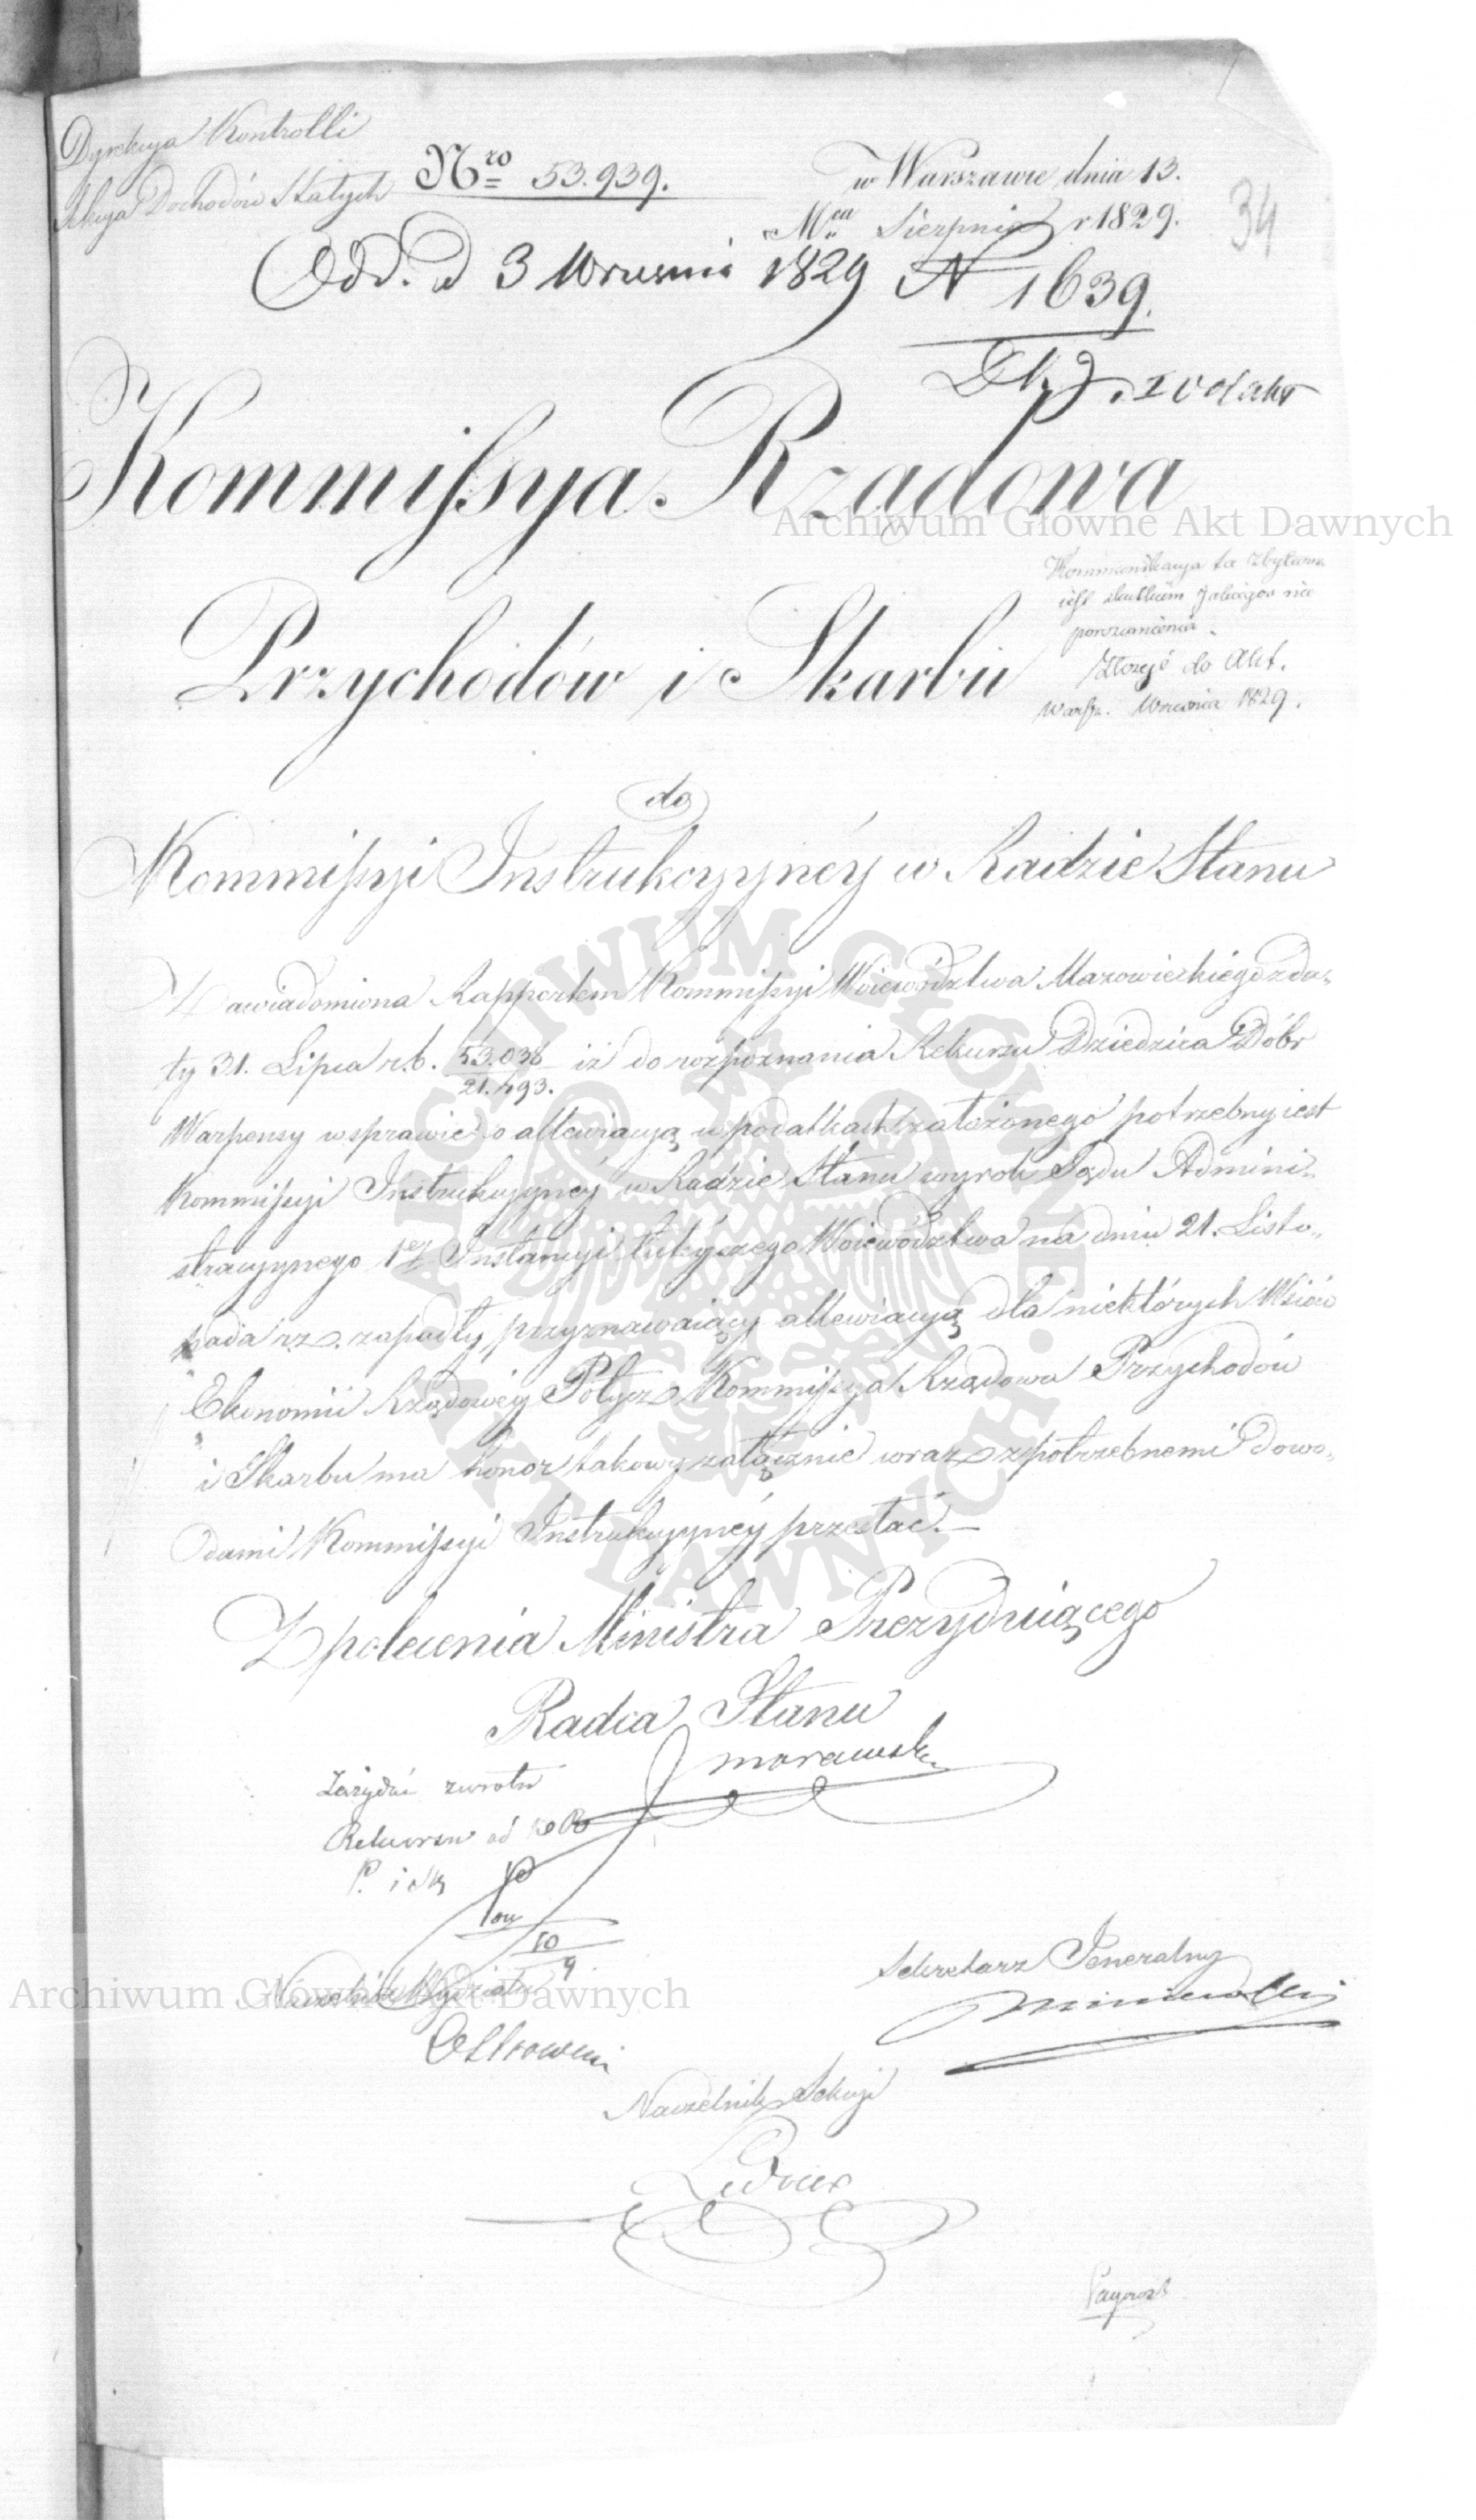 Dyrekcya Kontrolli
Sekcya Dochodów Stałych
Nro 53.939.
w Warszawie dnia 13.
Mca Sierpnia r 1829.
34
Odd. d 3 Wrzesnia 1829 N 1639.
Kommissya Rządowa
Przychodów i Skarbu
Kommunikacya ta zbyteczna
iest skutkiem jakiegoś nie
porozumienia.
Złożyć do Akt.
Warsz. Wrzesnia 1829.
do
Kommissyi Instrukcyyney w Radzie Stanu
Zawiadomiona Rapportem Kommissyi Woiewództwa Mazowieckiego z da-
ty 31. Lipca r.b. 53.036/21.493. iż do rozpoznania Rekursu Dziedzica Dóbr
Warpensy w sprawie o allewiacyą w podatkach założonego potrzebny iest
Kommissyi Instrukcyyney w Radzie Stanu wyrok Sądu Admini-
stracyynego 1ey Instancyi tuteyszego Woiewództwa na dniu 21. Listo-
pada r.z. zapadły, przyznawaiący allewiacyą dla niektórych Wsiów
Ekonomii Rządowey Potycz Kommissya Rządowa Przychodów
i Skarbu ma honor takowy załącznie wraz z potrzebnemi dowo-
dami Kommissyi Instrukcyyney przesłać.—
Z polecenia Ministra Prezyduiącego
Radca Stanu
Morawski
Zażądać zwrotu
Rekursu od
P. i Sk
10/9
Naczelnik Wydziału
Ostrowski
Sekretarz Jeneralny
Naczelnik Sekcyi
Archiwum Główne Akt Dawnych
Archiwum Główne Akt Dawnych
ARCHIWUM GŁÓWNE AKT DAWNYCH